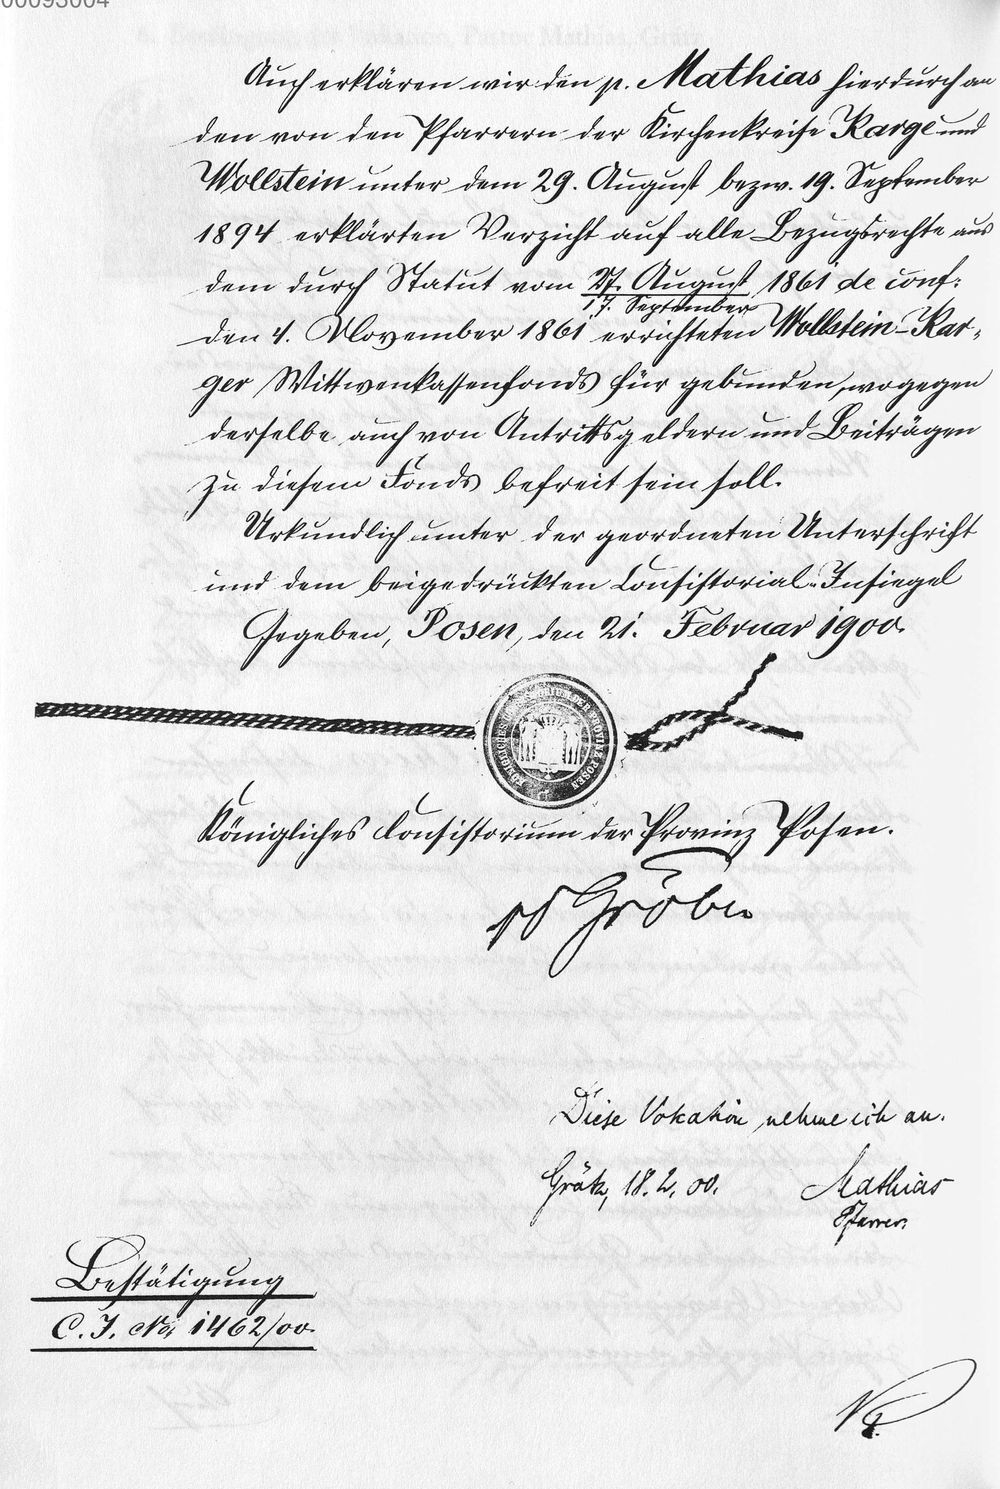 00093004
Auch erklären wir den p. Mathias hierdurch an
den von den Pfarrern der Kirchenkreise Karge und
Wollstein unter dem 29. August bezw. 19. September
1894 erklärten Verzicht auf alle Bezugsrechte aus
dem durch Statut vom 27. August 1861 de conf:
17. September
den 4. November 1861 errichteten Wollstein-Kar-
ger Wittwenkassenfonds für gebunden, wogegen
derselbe auch von Antrittsgeldern und Beiträgen
zu diesem Fonds befreit sein soll.
Urkundlich unter der geordneten Unterschrift
und dem beigedrückten Consistorial-Insiegel
Gegeben, Posen, den 21. Februar 1900.
KÖNIGLICHES CONSISTORIUM DER PROVINZ POSEN
Königliches Consistorium der Provinz Posen.
Gröben
Diese Vokation nehme ich an.
Grätz, 18.2.00. Mathias
Pfarrer.
Bestätigung
C. I. No. 1462/00.